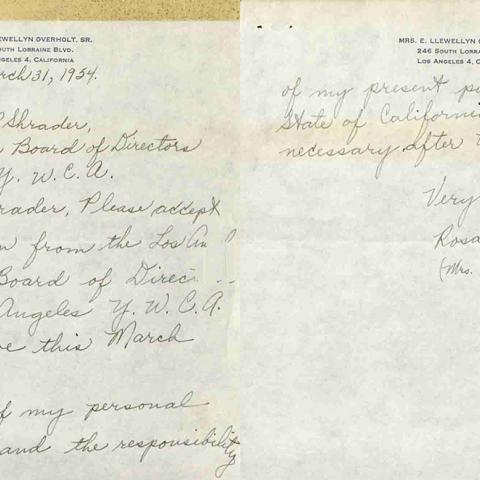 LEWELLYN OVERHOLT, SR.
OUTH LORRAINE BLVD.
NGELES 4, CALIFORNIA
rch 31, 1954.
Shrader,
Board of Directors
Y. W. C. A.
rader, Please accept
from the Los An
Board of Direc
Angeles Y. W. C. A.
e this March
f my personal
and the responsibility
MRS. E. LLEWELLYN
246 SOUTH LORRA
LOS ANGELES 4, C
of my present p
State of California
necessary after
Very
Rosa
(Mrs.